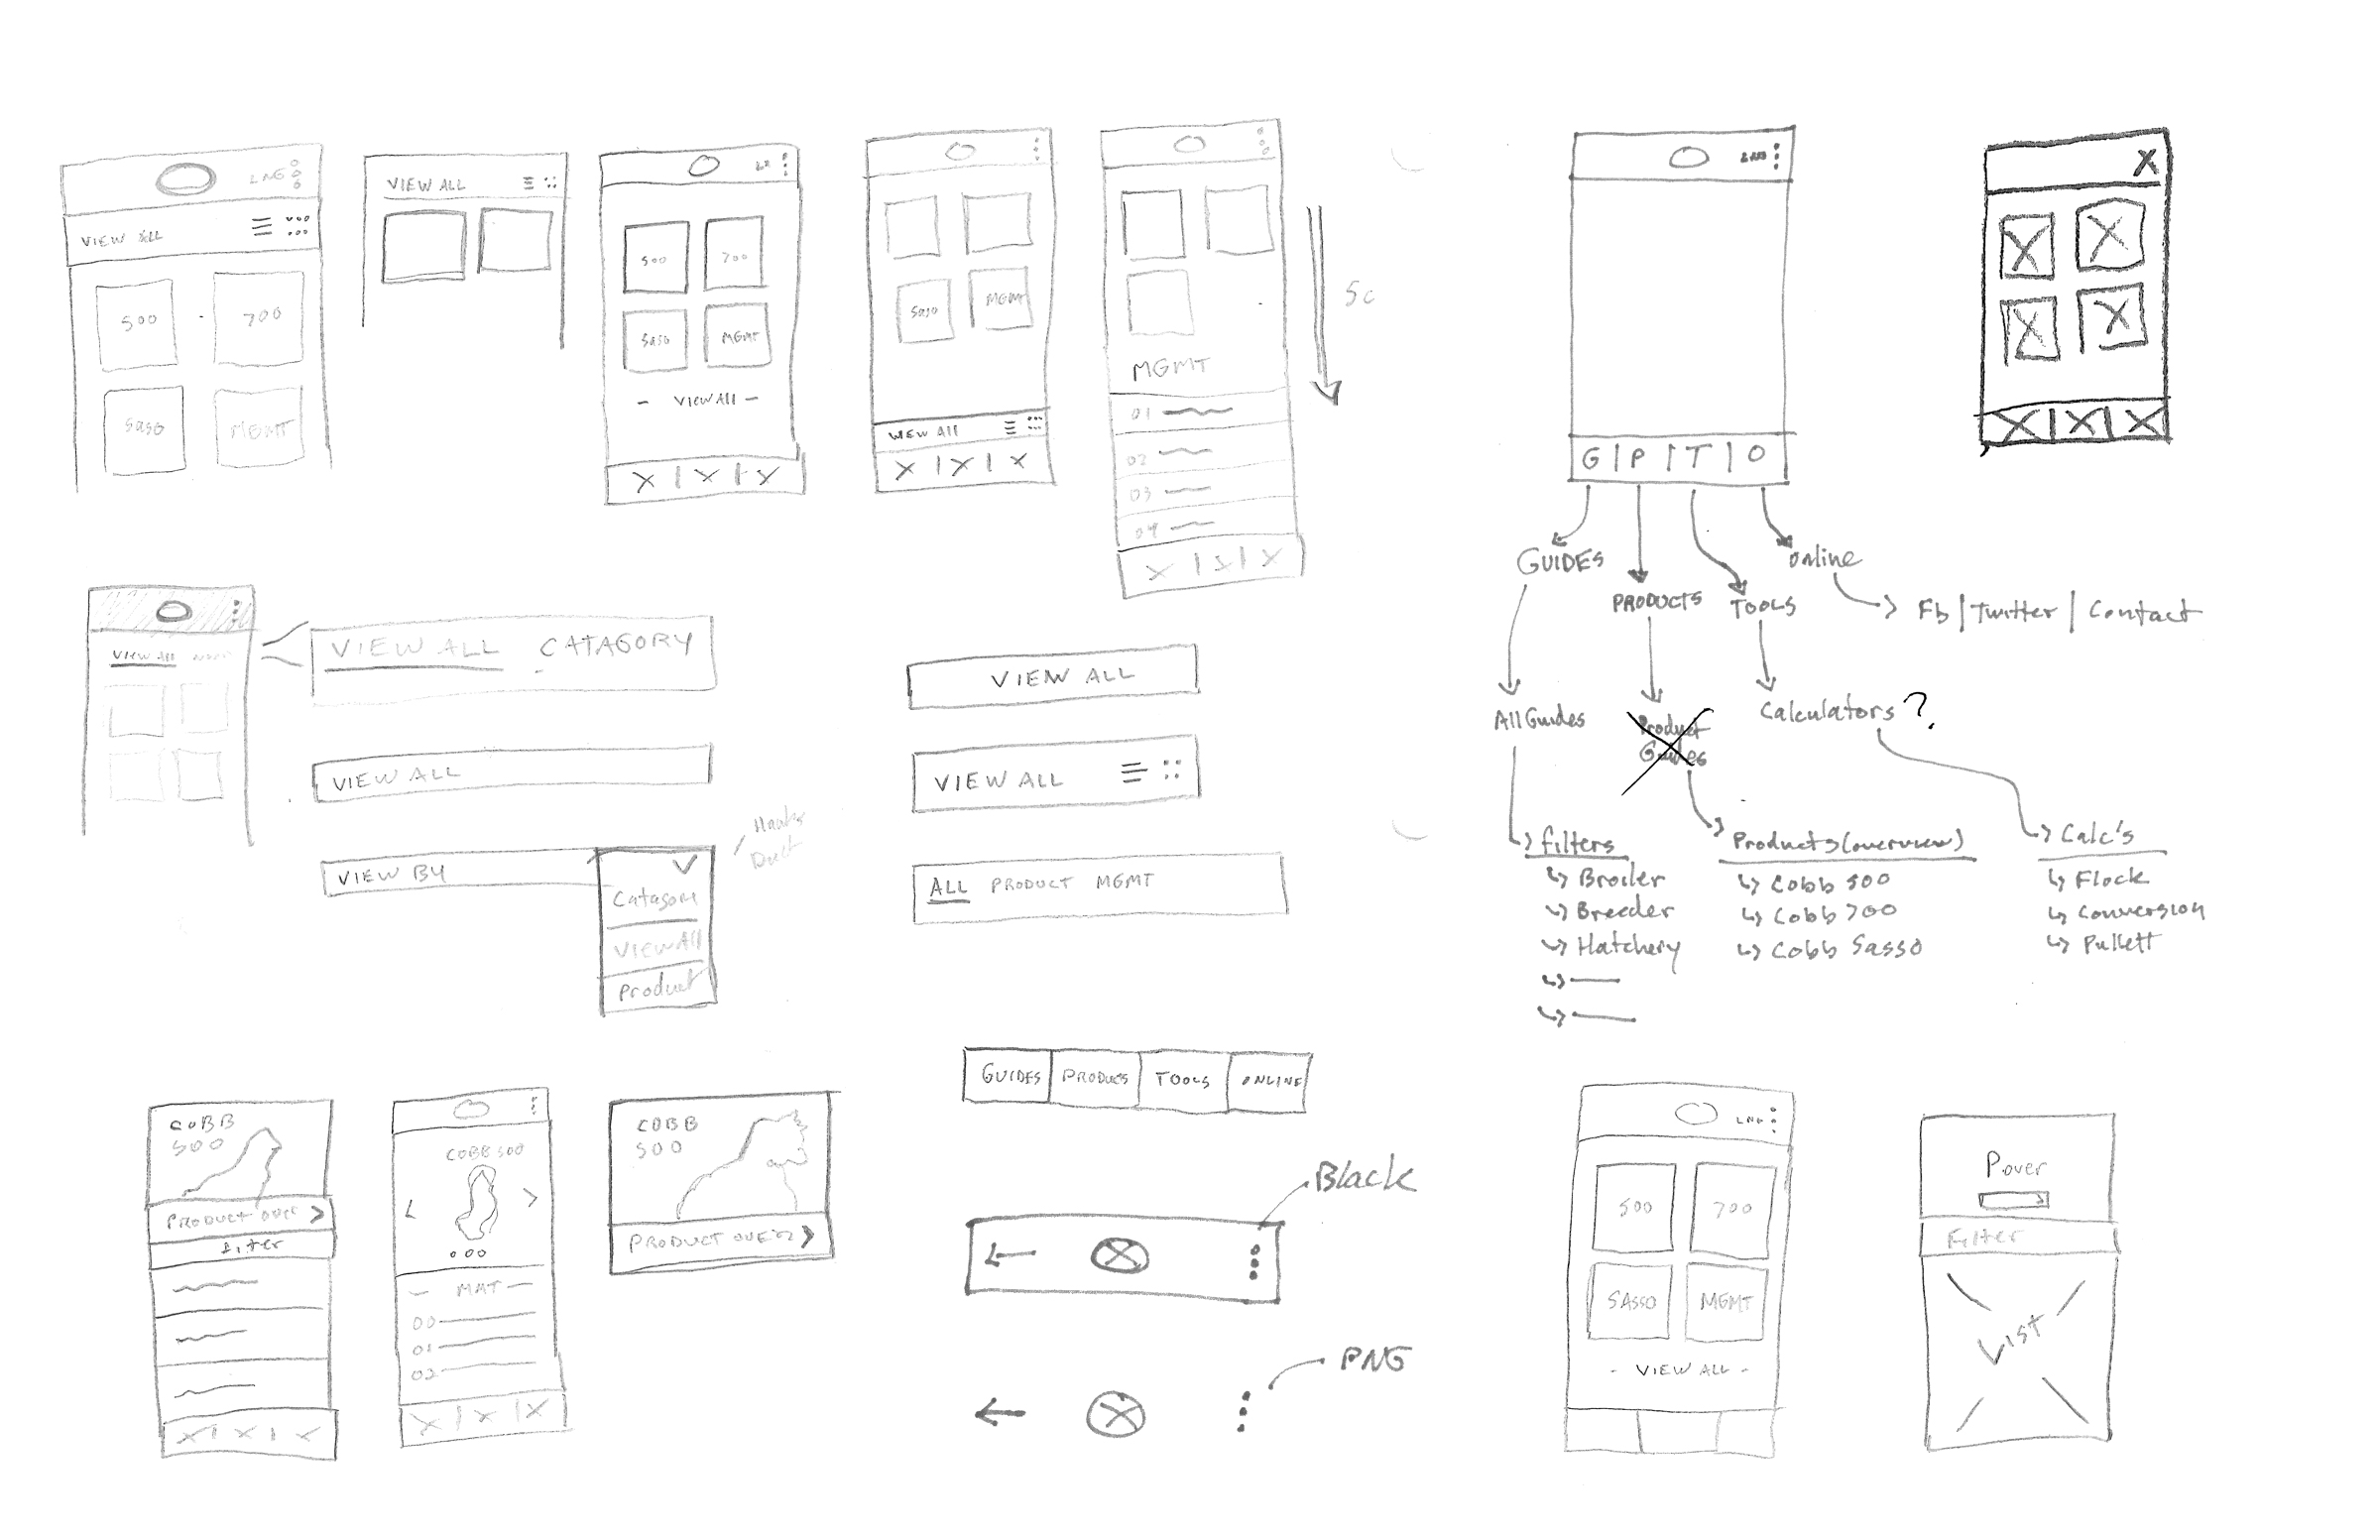 LNG
VIEW ALL
500
700
Saso
MGMT
VIEW ALL
500
700
Saso
MGMT
- VIEW ALL -
X | X | X
Saso
MGMT
VIEW All
X | X | X
MGMT
01
02
03
04
X | X | X
Sc
LNG
G | P | T | O
GUIDES
PRODUCTS
TOOLS
Online
Fb | Twitter | Contact
All Guides
Product
Guides
Calculators ?
filters
Broiler
Breeder
Hatchery
Products (overview)
Cobb 500
Cobb 700
Cobb Sasso
Calc's
Flock
Conversion
Pullett
X
VIEW ALL
VIEW ALL CATAGORY
VIEW ALL
VIEW BY
Catagory
VIEW All
Product
VIEW ALL
VIEW ALL
ALL PRODUCT MGMT
COBB
500
PRODUCT OVER >
filter
X | X | X
COBB 500
< >
- MAT -
00
01
02
X | X | X
COBB
500
PRODUCT OVER >
GUIDES
PRODUCTS
TOOLS
ONLINE
Black
PNG
LNG
500
700
SASSO
MGMT
- VIEW ALL -
P.over
Filter
LIST